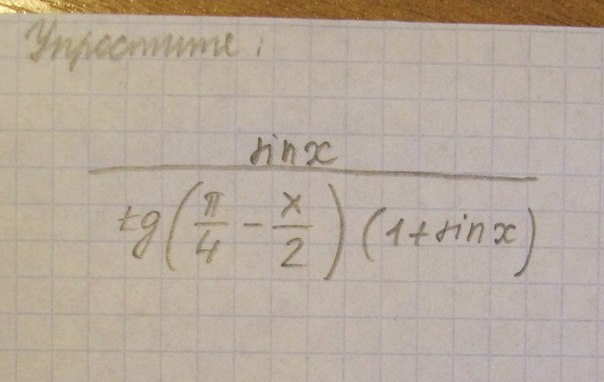 Упростите:
sin x
tg(π/4 - x/2)(1+sin x)